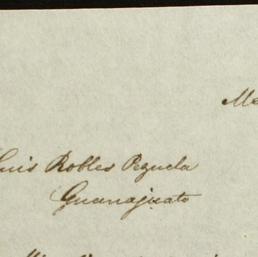 Me
Luis Robles Pezuela
Guanajuato